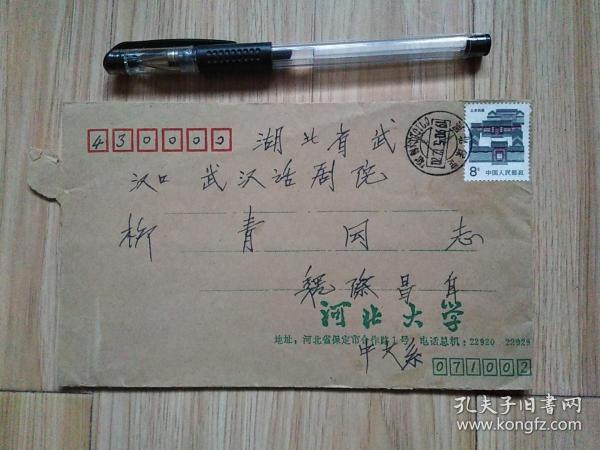 430000
湖北省武
汉口 武汉话剧院
柳青同志
魏际昌自
河北大学
地址：河北省保定市合作路1号 电话总机：22920 22929
中文系
071002
8分 中国人民邮政
孔夫子旧书网
www.kongfz.com